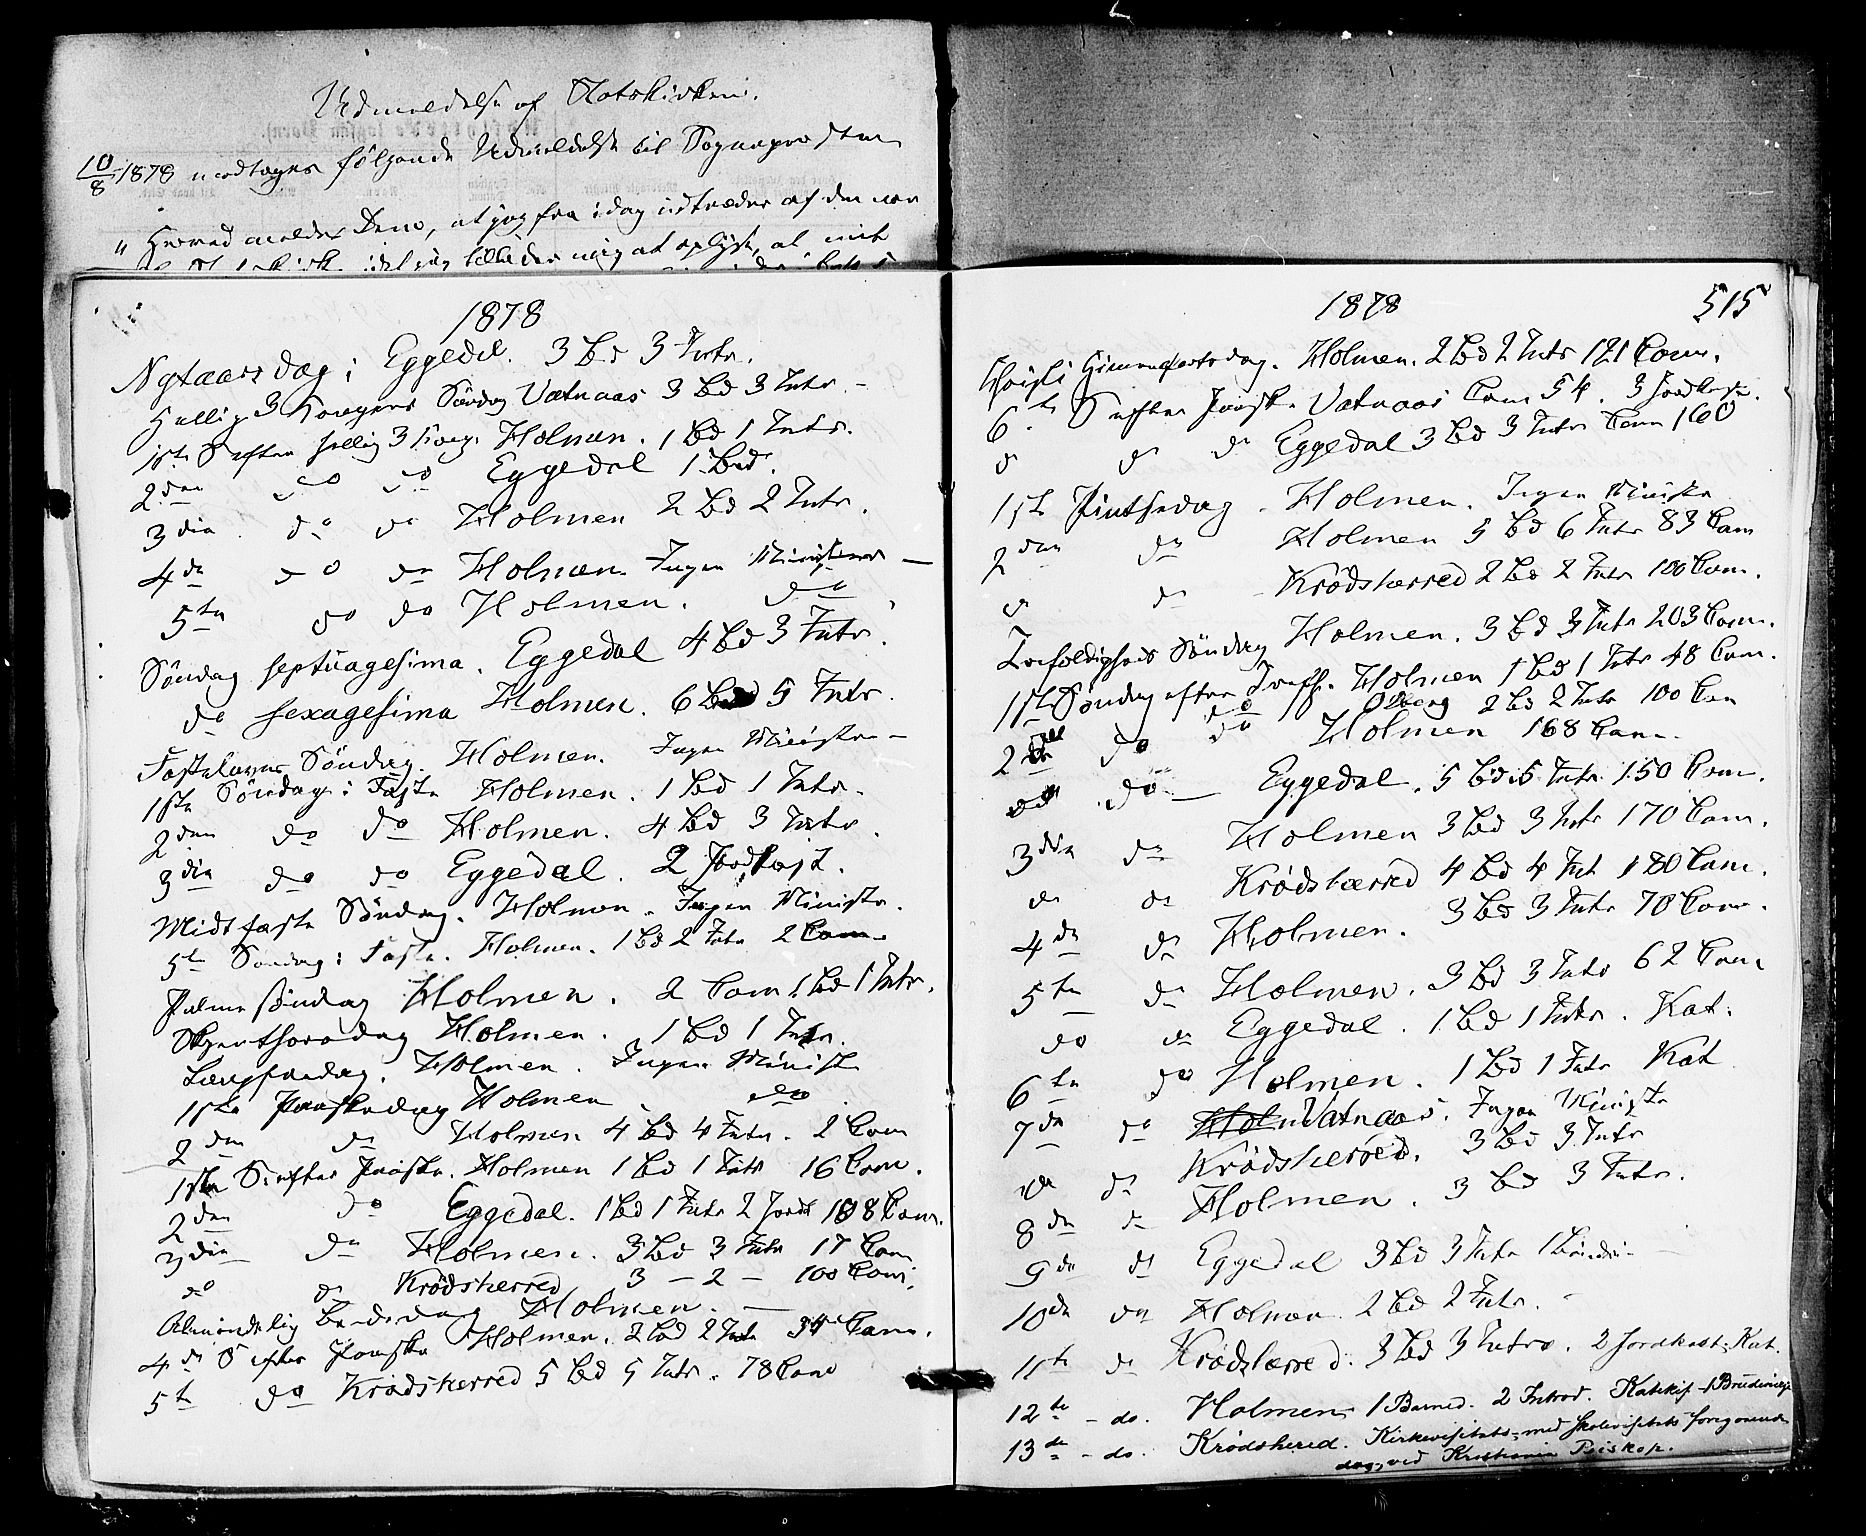 Udmeldelse af Statskirken.
10/8 1878 modtoges følgende Udmeldelse til Sognepresten
" Herved meldes Dem, at jeg fra idag udtræder af den nor
idet jeg tillader mig at oplyse, at mit
1878
Nytaarsdag i Eggedal. 3 Bd 3 Intr.
Hellig 3 Kongers Søndag Vatnaas 3 Bd 3 Intr. -
1ste S efter hellig 3 Kong. Holmen. 1 Bd 1 Intr.
2den do do Eggedal 1 Bd.
3die do do Holmen 2 Bd 2 Intr.
4de do do Holmen. Ingen Ministr. -
5te do do Holmen. do
Søndag septuagesima. Eggedal 4 Bd 3 Intr.
do sexagesima Holmen. 6 Bd 5 Intr.
Fastelavns Søndag. Holmen. Ingen Ministr. -
1ste Søndag i Faste Holmen. 1 Bd 1 Intr.
2den do do Holmen. 4 Bd 3 Intr.
3die do do Eggedal. 2 Jordkast.
Midtfaste Søndag. Holmen. Ingen Ministr.
5te Søndag i Faste. Holmen. 1 Bd 2 Intr 2 Com.
Palmesøndag Holmen. 2 Com. 1 Bd 1 Intr.
Skjærthorsdag Holmen. 1 Bd 1 Intr.
Langfredag. Holmen. Ingen Minist
1ste Paaskedag Holmen do
2den do Holmen 4 Bd 4 Intr. 2 Com
1ste S. efter Paaske. Holmen 1 Bd 1 Intr 16 Com.
2den do Eggedal. 1 Bd 1 Intr 2 Jordk 108 Com.
3die do Holmen. 3 Bd 3 Intr 17 Com
do do Krødsherred 3 - 2 - 100 Com.
Almindelig Bededag Holmen. -
4de S efter Paaske Holmen. 2 Bd 2 Intr 34 Com.
5te do Krødsherred 5 Bd 5 Intr. 78 Com
1878 515
Christi Himmelfartsdag. Holmen. 2 Bd 2 Intr 121 Com.
6te S efter Paaske. Vatnaas Com 54. 3 Jordkast.
do do do Eggedal 3 Bd 3 Intr Com 160
1ste Pintsedag. Holmen. Ingen Ministr
2den do Holmen 5 Bd 6 Intr 83 Com
do do Krødsherred 2 Bd 2 Intr 100 Com.
Trefoldigheds Søndag Holmen. 3 Bd 3 Intr 203 Com.
1ste Søndag efter Tref. Holmen 1 Bd 1 Intr 48 Com.
do Olberg 2 Bd 2 Intr 100 Com
2den do do Holmen 168 Com.
do do - Eggedal. 5 Bd 5 Intr 150 Com.
3die do Holmen 3 Bd 3 Intr 170 Com.
do do Krødsherred 4 Bd 4 Int 180 Com.
4de do Holmen. 3 Bd 3 Intr 70 Com.
5te do Holmen. 3 Bd 3 Intr 62 Com
do do Eggedal. 1 Bd 1 Intr. Kat.
6te do Holmen. 1 Bd 1 Intr Kat
7de do Vatnaas. Ingen Ministr
do do Krødsherred. 3 Bd 3 Intr
8de do Holmen. 3 Bd 3 Intr.
9de do Eggedal 3 Bd 3 Intr
10de do Holmen 2 Bd 2 Intr.
11te do Krødsherred. 3 Bd 3 Intro. 2 Jordkast. Kat.
12te - do. Holmen. 1 Barned. 2 Introd. Katekis. - 1 Brudevielse
13de - do. Krødsherred. Kirkevisitats, med Skolevisitats foregaaende
dag, ved Kristiania Biskop.